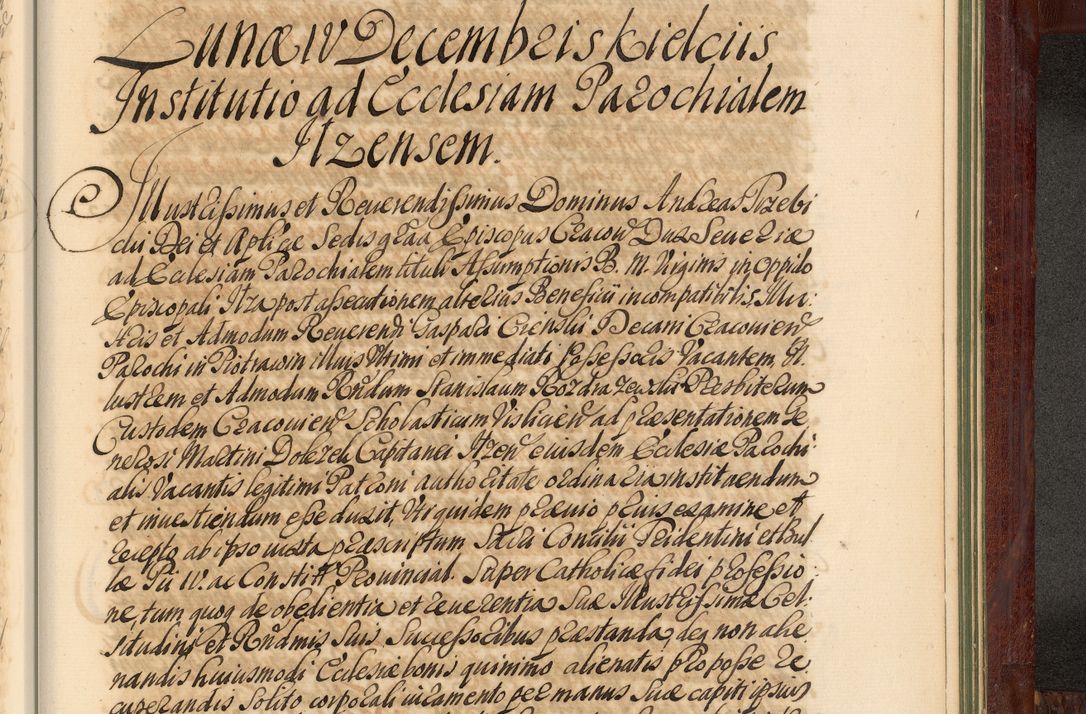 Lunæ IV Decembris Kielciis
Institutio ad Ecclesiam Parochialem
Ilzensem.
Illustrissimus et Reverendissimus Dominus Andreas Trzebi
cki Dei et Aplicæ Sedis graa Episcopus Cracov Dux Severiæ
ad Ecclesiam Parochialem tituli Assumptionis B. M. Virginis in oppido
Episcopali Ilza post assecutionem alterius Beneficii incompatibilis Illu:
stris et Admodum Reverendi Gaspari Cienski Decani Cracovien
Parochi in Piotrawin illius ultimi et immediati Possessoris Vacantem, Il
lustrem et Admodum Rndum Stanislaum Rozdrazewski Presbiterum
Custodem Cracovien Scholasticum Vislicien ad præsentationem Ge
nerosi Martini Dobrzeli Capitanei Ilzen eiusdem Ecclesiæ Parochi
alis Vacantis legitimi Patroni authoritate ordinaria instituendum
et investiendum esse duxit, Ut quidem prævio prius examine et
recepto ab ipso iuxta præscriptum Sacri Concilii Tridentini et Bul
læ Pii IV. ac Constitt Provincial. super Catholicæ fidei professio
ne, tum quoq de obedientia et reverentia Suæ Illustrissimæ Cel
situdini et Rndmis Suis Successoribus præstanda, deq non alie
nandis huiusmodi Ecclesiæ bonis quinimo alienatis pro posse re
cuperandis solito corporali iuramento per manus suæ capiti ipsius